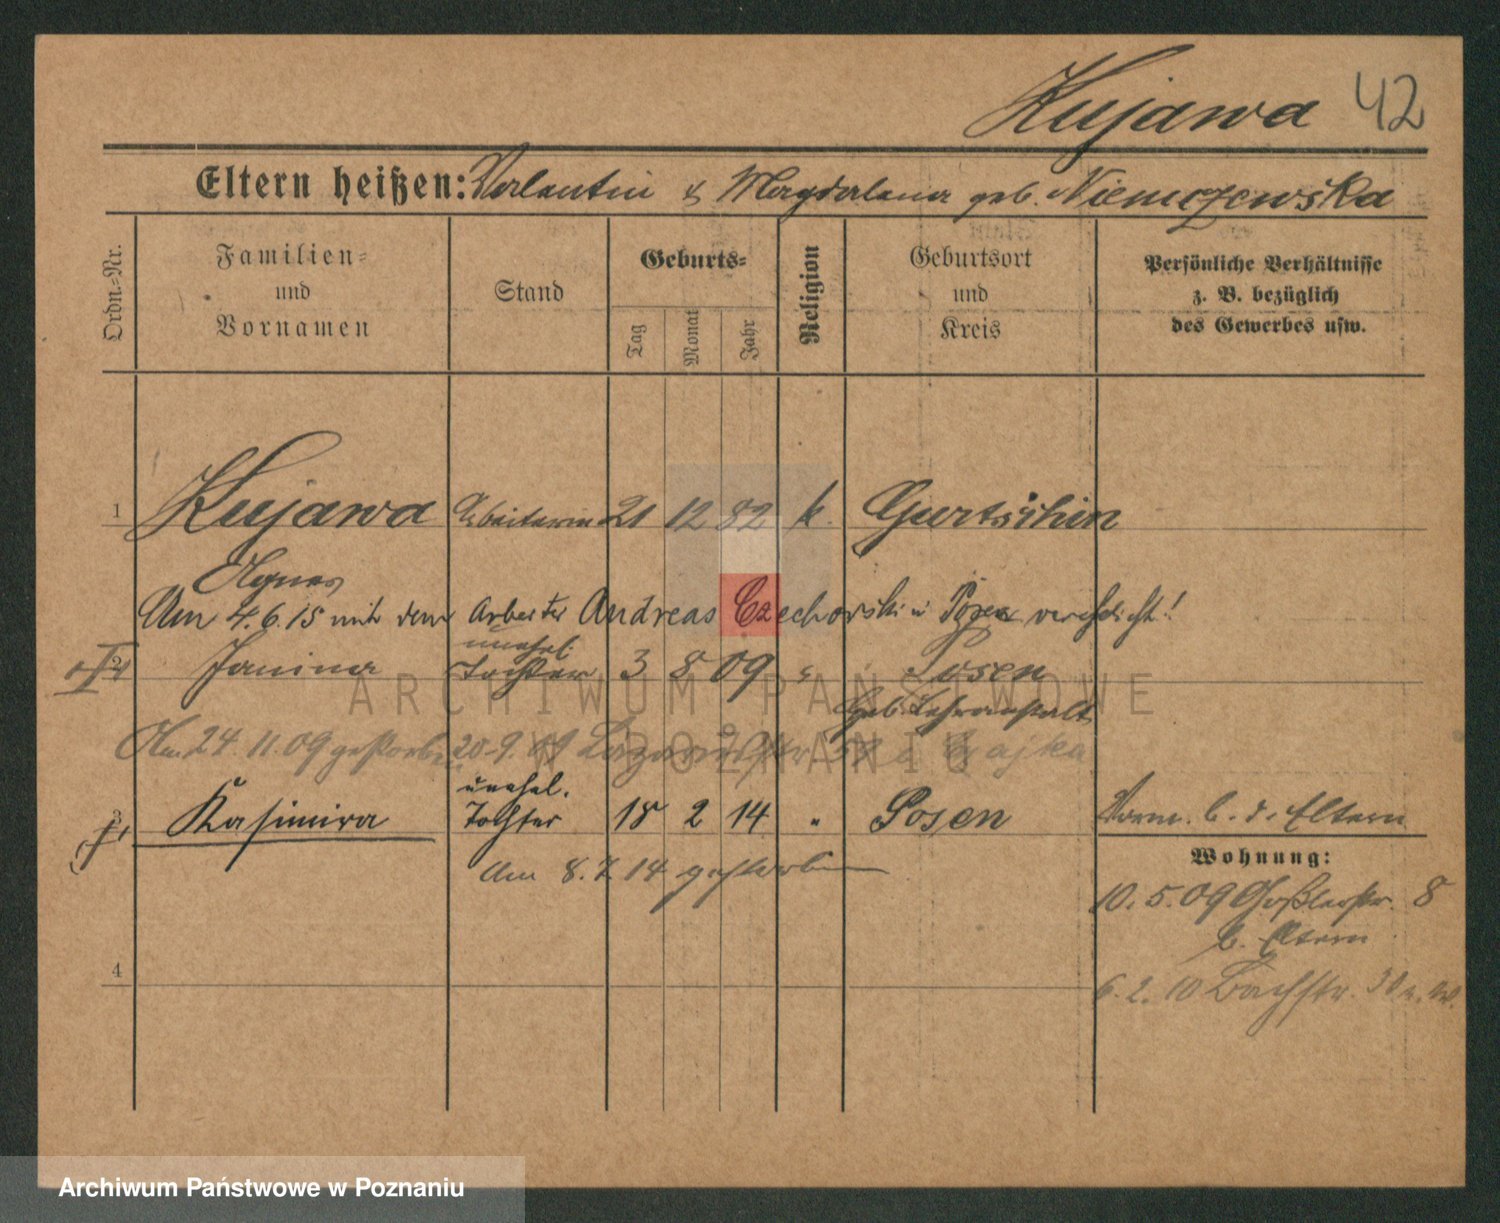 Kujawa 42
Eltern heißen: Valentin & Magdalena geb. Niemczewska
Ordn.-Nr.
Familien-
und
Vornamen
Stand
Geburts-
Tag
Monat
Jahr
Religion
Geburtsort
und
Kreis
Persönliche Verhältnisse
z. B. bezüglich
des Gewerbes usw.
1 Kujawa Arbeiterin 21 12 82 k. Gurtschin
Agnes
Am 4.6.15 mit dem Arbeiter Andreas Czechorski in Posen verehelicht!
unehel.
2 Janina Tochter 3 8 09 " Posen
Geb. Lehranstalt
Am 24.11.09 gestorben 20.9.09
unehel.
3 Kasimira Tochter 18 2 14 " Posen Vorm. b. d. Eltern
Am 8.7.14 gestorben
Wohnung:
10.5.09 Goßlerstr. 8
b. Eltern
4
6.2.10 Bachstr.
ARCHIWUM PAŃSTWOWE
W POZNANIU
Archiwum Państwowe w Poznaniu